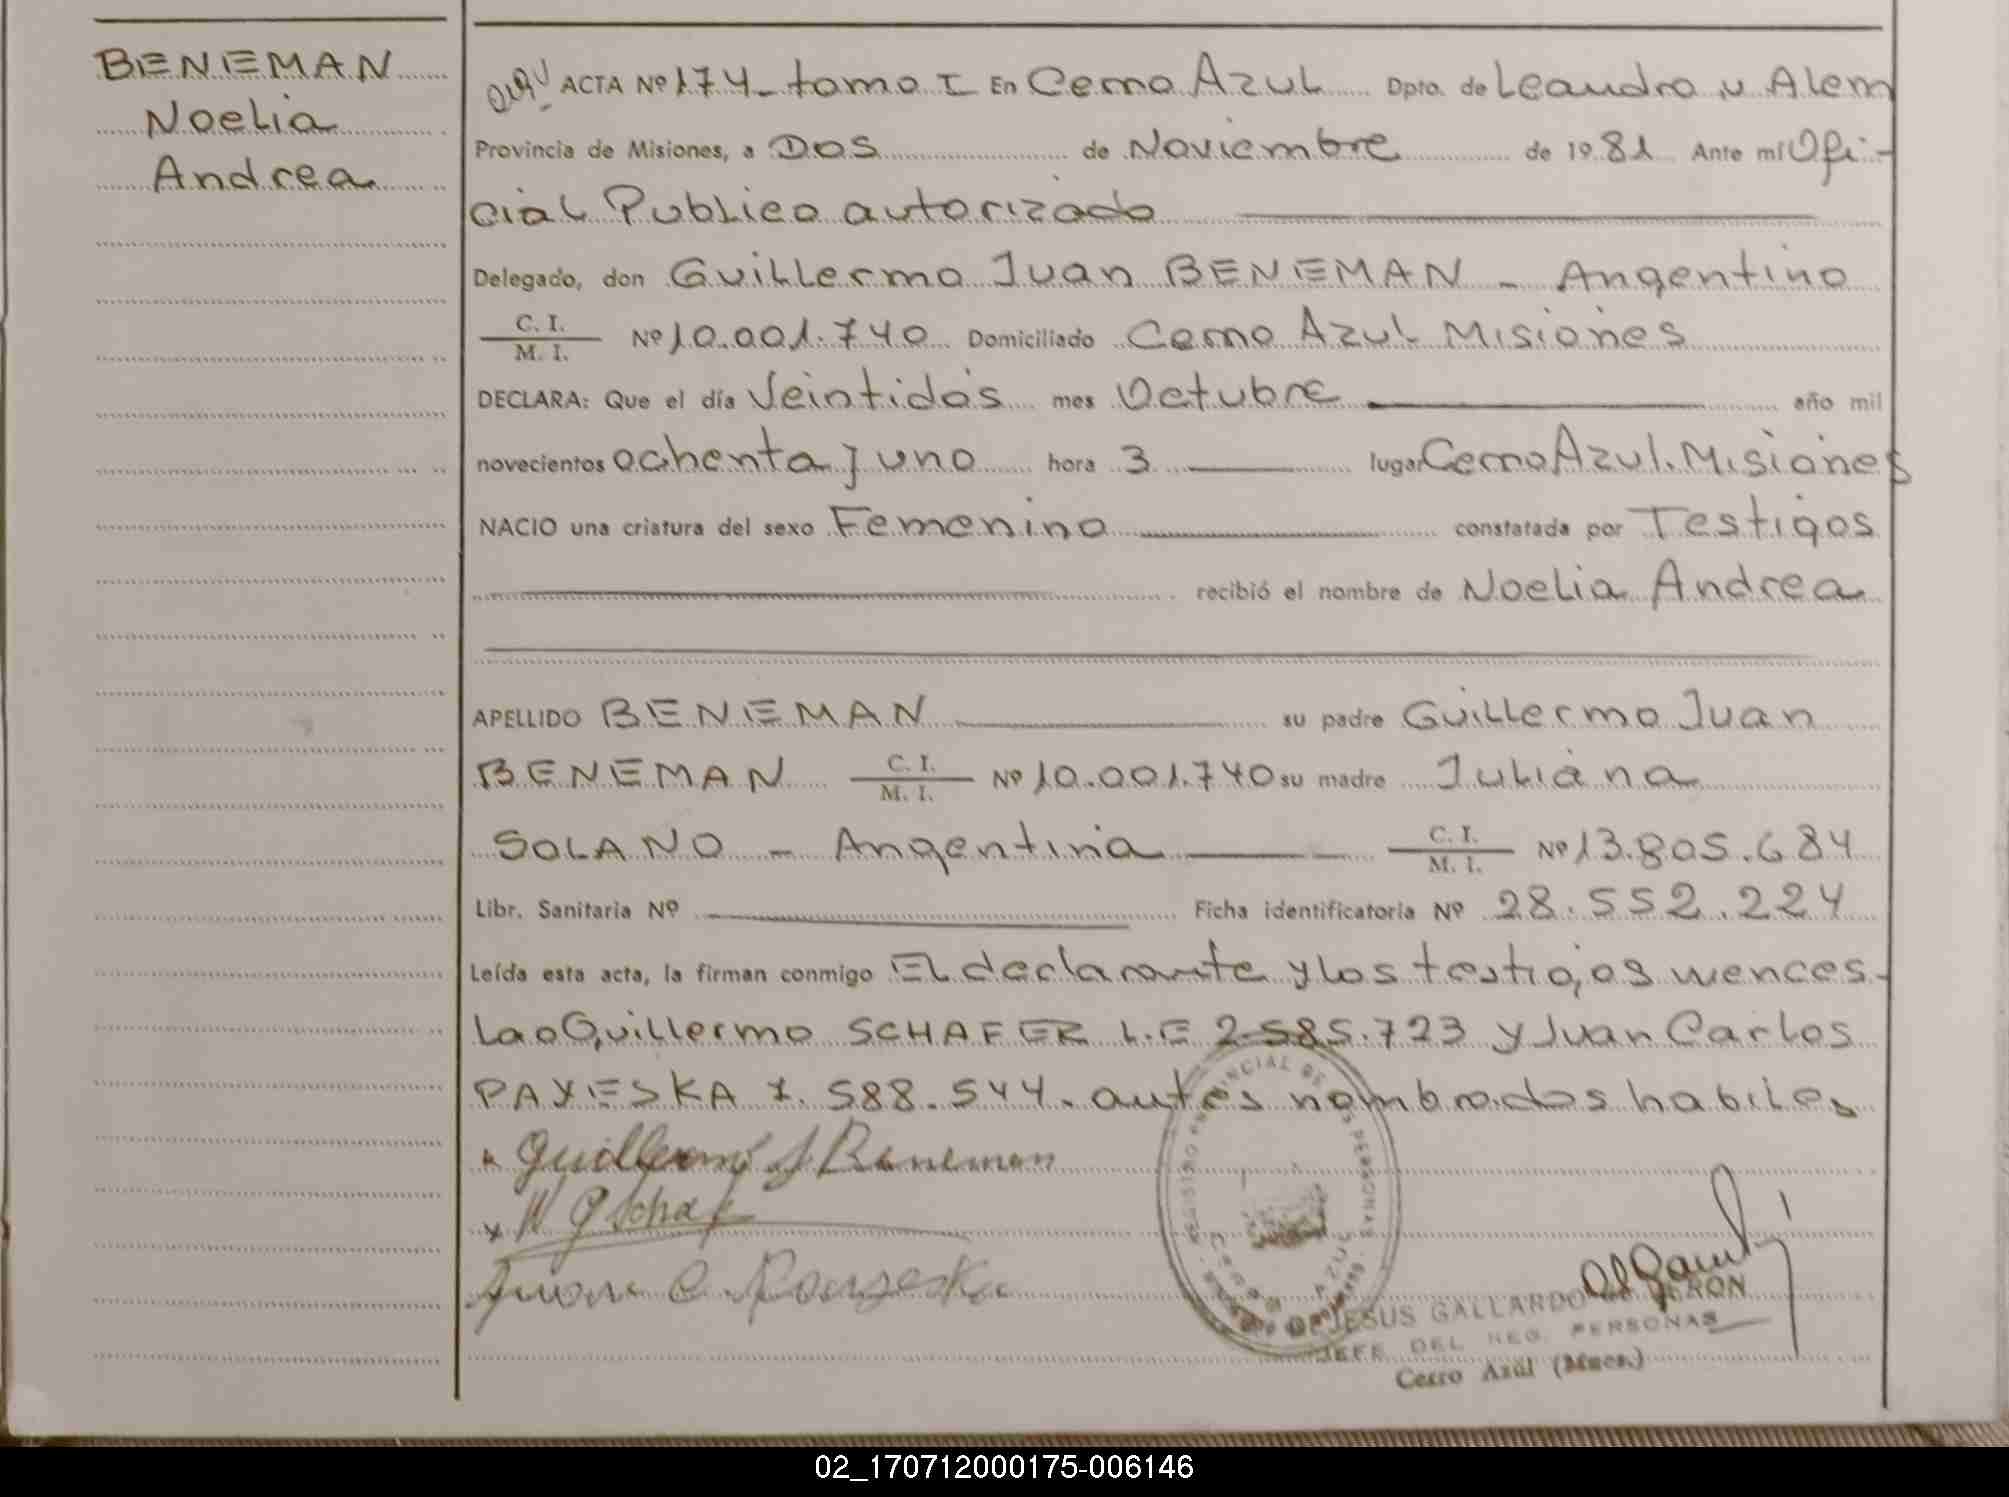 BENEMAN
Noelia
Andrea
ACTA Nº 174 - tomo I En Cerro Azul Dpto. de Leandro N Alem
Provincia de Misiones, a Dos de Noviembre de 1981 Ante mí Ofi-
cial Publico autorizado
Delegado, don Guillermo Juan BENEMAN - Argentino
C. I. / M. I. Nº 10.001.740 Domiciliado Cerro Azul Misiones
DECLARA: Que el día Veintidós mes Octubre año mil
novecientos ochenta y uno hora 3 lugar Cerro Azul. Misiones
NACIO una criatura del sexo Femenino constatada por Testigos
recibió el nombre de Noelia Andrea
APELLIDO BENEMAN su padre Guillermo Juan
BENEMAN C. I. / M. I. Nº 10.001.740 su madre Juliana
SOLANO - Argentina C. I. / M. I. Nº 13.805.684
Libr. Sanitaria Nº Ficha identificatoria Nº 28.552.224
Leída esta acta, la firman conmigo El declarante y los testigos wences-
lao Guillermo SCHAFER L.E 2.585.723 y Juan Carlos
PAYESKA 7.588.544. antes nombrados habiles
Guillermo J Beneman
W G Schaf
Juan C.
REGISTRO PROVINCIAL DE LAS PERSONAS
CERRO AZUL
JESUS GALLARDO DE PERON
JEFE DEL REG. PERSONAS
Cerro Azul (Mnes.)
02_170712000175-006146